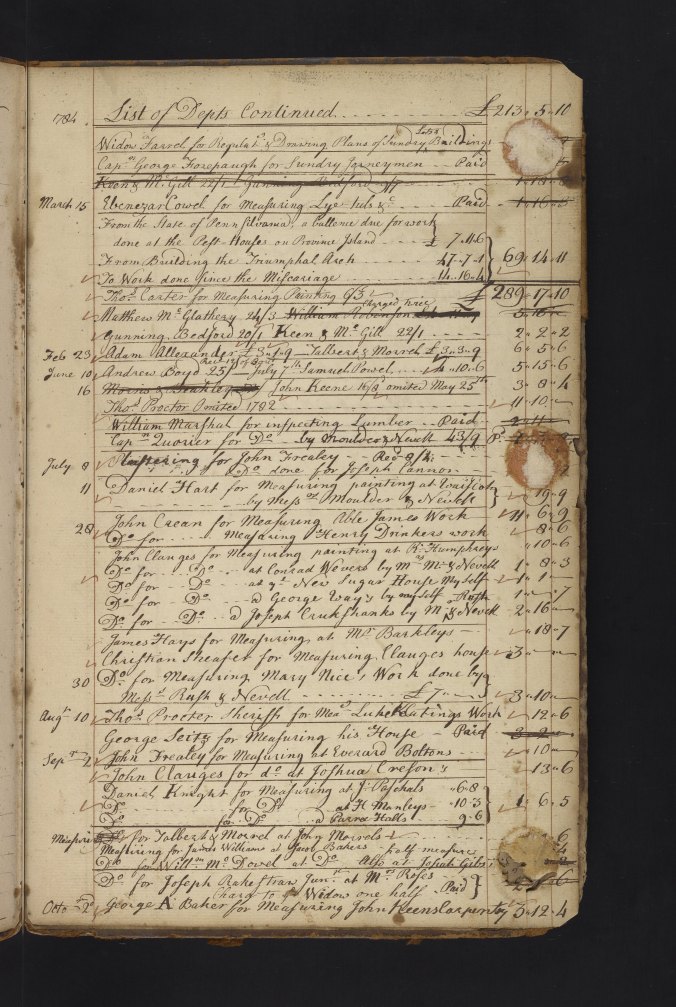 1784. List of Depts Continued £213.5.10
Widow Farrel for Regulatg & Drawing Plans of Sundry Lotts Buildings
Capn George Forepaugh for Sundry Jorneymen - Paid
Keen & Mc Gill 22/1 Gunning Bedford
March 15 Ebenezar Cowel for Measuring Lye tubs &c Paid
From the State of Pennsilvania, a ballence due for work
done at the Pest-Houses on Province Island £ 7.11.6
From Building the Triumphal Arch 47.7.1 } 69.14.11
To Work done Since the Miscariage 14.16.4
£ 289.17.10
23 Thos Carter for Measuring Painting 9/3
Matthew Mc Glathery 24/3 William Robenson Charged twice
Gunning Bedford 20/1 Keen & Mc Gill 22/1 2.2.2
Feb 23 Adam Allexander £3.1.9 Talbert & Morrel £3.3.9 6.5.6
June 10 Andrew Boyd 25/ July 7th Samuel Powel 4.10.6 5.15.6
16 Morris & Brakley John Keene 16/8 omited May 25th 3.8.4
Thos Proctor Omited 1782 11.10
William Marshal for inspecting Lumber Paid
Capn Quorier for Do by Moulder & Nevell 43/9 P.
July 8 Plastering for John Frealey Recd 8/4
Do done for Joseph Cannon
11 Daniel Hart for Measuring painting at
by Messrs Moulder & Nevell } 19.9
John Crean for Measuring Able James Work 11.6.9
28 Do for Measuring Henry Drinkers work 8.6
John Clauges for Measuring painting at R. Humphreys 10.6
Do for Do at Conrad Wevers by Mc & Nevell 1.8.3
Do for Do at ye New Sugar House My Self 1.1
Do for Do a George Way's by my self Rush 1. 7
Do for Do a Joseph Crukshanks by M & Nevell 2.16
James Hays for Measuring at Mr Barkleys 18.7
Christian Sheafer for Measuring Clauges house 3
30 Do for Measuring Mary Nice's Work done by
Messrs Rush & Nevell £7 3.10
Augt 10 Thos Procter Sheriff for Meag Luke Keatings Work 12.6
George Seitz for Measuring his House - Paid
Sepr 2 John Frealey for Measuring at Everard Boltons 10
John Clauges for do at Joshua Cresons 13.6
Daniel Knight for Measuring at J. Paschals 6.8
Do for Do at H. Manleys 10.3 } 1.6.5
Do for Do a Parrer Halls 9.6
Measuring for Talbert & Morrel at John Morrels 6
Measuring for James Williams at Guoy Bakers half measure
Do for Willm Mc Dowel at Do Also at Josiah Gibs
Do for Joseph Rakestraw Junr at Mrs Roses
Charg to ye Widow one half Paid }
Octor 2d George A Baker for Measuring John Keens Carpentry 3.12.4